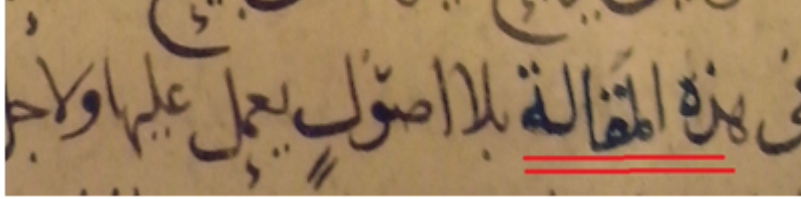 في هذه المقالة بلا اصولٍ يعمل عليها ولاجل